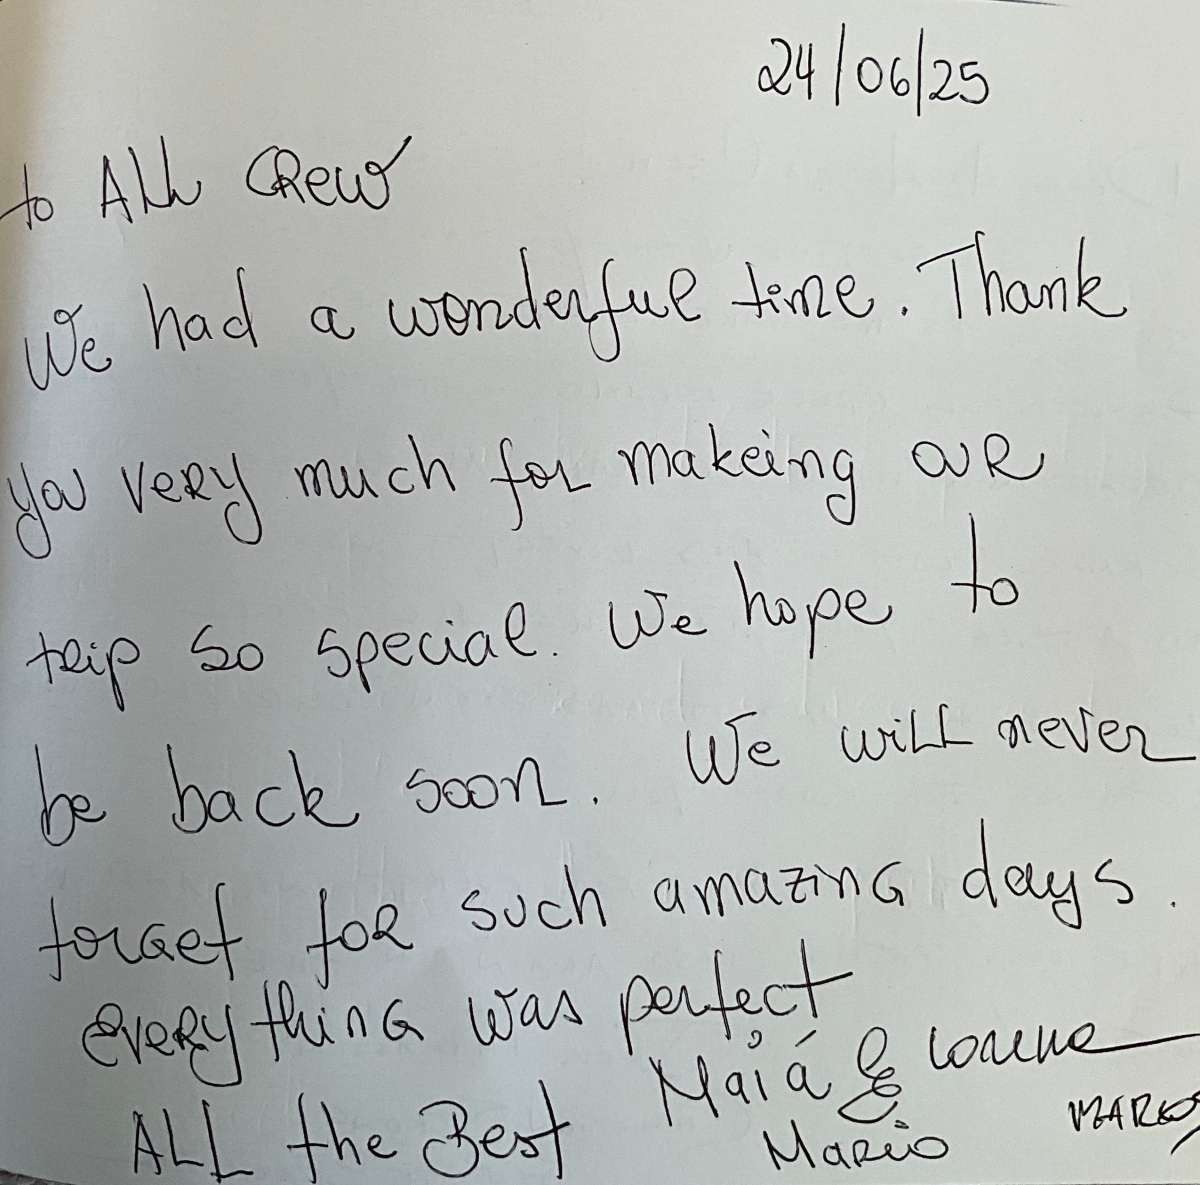 24/06/25
to All CRew
We had a wonderful time. Thank
you very much for makeing our
trip so special. We hope to
be back soon. We will never
forget for such amazing days.
everything was perfect
Maiá &
ALL the Best
Mario
MARKOS